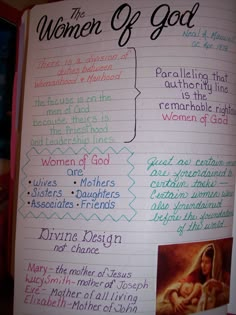 The
Women Of God
Neal A. Maxwell
There is a division of
duties between
Womanhood & Manhood
the focus is on the
men of God
because theirs is
the Priesthood
and leadership lines.
Paralleling that
authority line
is the
remarkable righteous
Women of God
Women of God
are
• Wives • Mothers
• Sisters • Daughters
• Associates • Friends
Just as certain men
are foreordained to
certain tasks —
Certain women were
also foreordained
before the foundation
of the world
Divine Design
not chance
Mary - the mother of Jesus
Lucy Smith - mother of Joseph
Eve - Mother of all living
Elizabeth - Mother of John